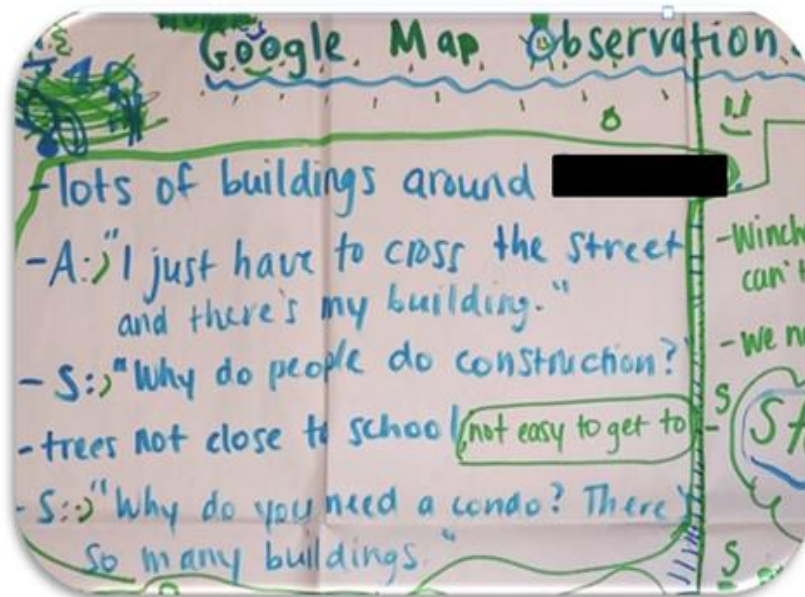 Google Map Observation
-lots of buildings around
-A:) "I just have to cross the street
and there's my building."
-S:) "Why do people do construction?"
-trees not close to school, not easy to get to
-S:) "Why do you need a condo? There
so many buildings."
-Winch
can't
-we n
S
St
S